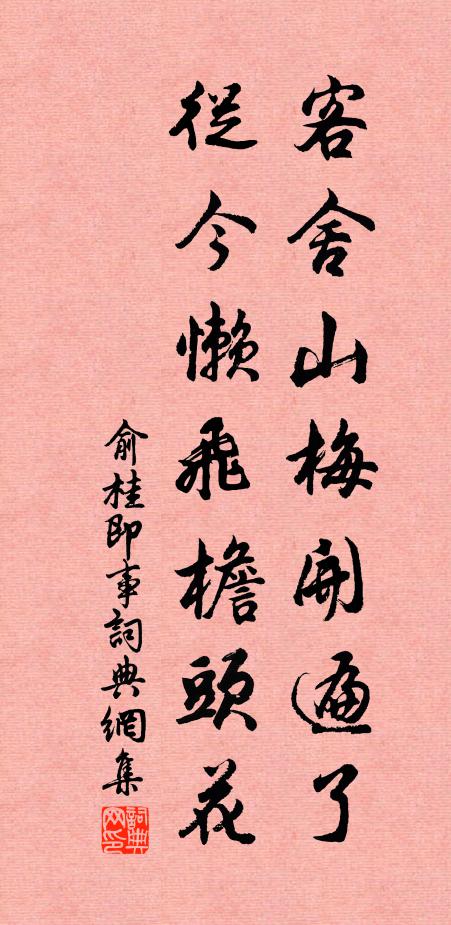 客舍山梅開遍了
從今懶飛檐頭花
俞桂即事詞典網集
詞典网印